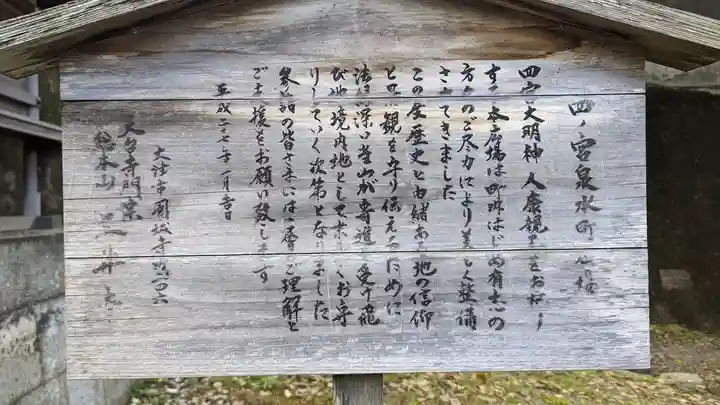 四ノ宮泉水町
四宮大明神 人康親
す 本広場は町内はじめ有志の
方々のご尽力により美しく整備
されてきました
この度歴史と由緒ある地の信仰
と 観を守り伝えるために
法 深い当山が寄進を受け飛
び地境内地として末 くお守
りしていく次第となりました
参詣の皆さまには一層のご理解と
ご支援をお願い致します
平成二十七年 月吉日
大津市園城寺町二四六
天台寺門宗
総本山 三井寺